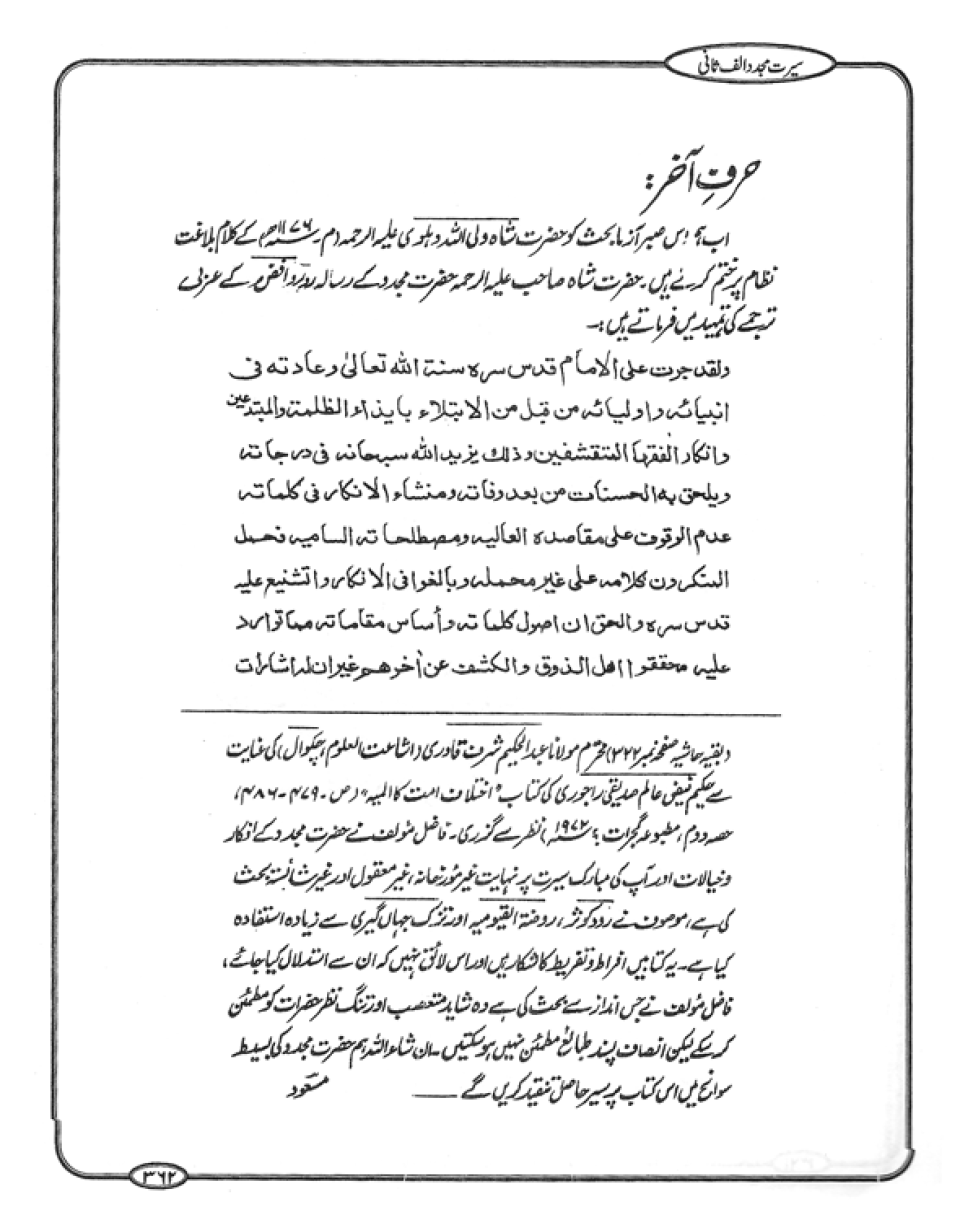 سیرت مجدد الف ثانی
حرفِ آخر :
اب ہم اس صبر آزما بحث کو حضرت شاہ ولی اللہ دہلوی علیہ الرحمہ (م ۔ ۱۱۷۶ھ) کے کلام بلاغت
نظام پر ختم کرتے ہیں ۔ حضرت شاہ صاحب علیہ الرحمہ حضرت مجدد کے رسالہ رد روافض کے عربی
ترجمے کی تمہید میں فرماتے ہیں :۔
ولقد جرت علی الامام قدس سرہ سنۃ اللہ تعالیٰ وعادتہ فی
انبیائہ واولیائہ من قبل من الابتلاء بایذاء الظلمۃ والمبتدعین
وانکار الفقہا المتقشفین وذلك یزید اللہ سبحانہ فی درجاتہ
ویلحق بہ الحسنات من بعد وفاتہ ومنشاء الانکار فی کلماتہ
عدم الوقوف علی مقاصدہ العالیہ ومصطلحاتہ السامیہ فحمل
المنکرون کلامہ علی غیر محملہ وبالغوا فی الانکار واتشنیع علیہ
قدس سرہ والحق ان اصول کلماتہ وأساس مقاماتہ مما توارد
علیہ محققوا اھل الذوق والکشف عن أخرھم غیر ان لہ اشارات
(بقیہ حاشیہ صفحہ نمبر ۳۲۲) محترم مولانا عبدالحکیم شرف قادری (اشاعت العلوم، چکوال) کی عنایت
سے حکیم فیض عالم صدیقی راجوری کی کتاب "اختلاف امت کا المیہ" (ص ۔ ۴۷۹ ۔ ۴۸۶،
حصہ دوم، مطبوعہ گجرات ؛ ۱۹۷۲ء) نظر سے گزری ۔ فاضل مؤلف نے حضرت مجدد کے افکار
و خیالات اور آپ کی مبارک سیرت پر نہایت غیر مؤرخانہ، غیر معقول اور غیر شائستہ بحث
کی ہے، موصوف نے رود کوثر، روضۃ القیومیہ اور تزک جہاں گیری سے زیادہ استفادہ
کیا ہے ۔ یہ کتابیں افراط و تفریط کا شکار ہیں اور اس لائق نہیں کہ ان سے استدلال کیا جائے،
فاضل مؤلف نے جس انداز سے بحث کی ہے وہ شاید متعصب اور تنگ نظر حضرات کو مطمئن
کر سکے لیکن انصاف پسند طبائع مطمئن نہیں ہو سکتیں ۔ ان شاء اللہ ہم حضرت مجدد کی بسیط
سوانح میں اس کتاب پر سیر حاصل تنقید کریں گے ـــــ مسعود
۳۶۲